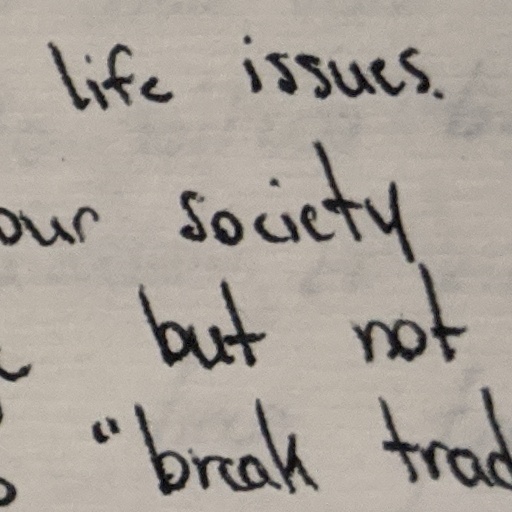 life issues.
our society
but not
"break trad